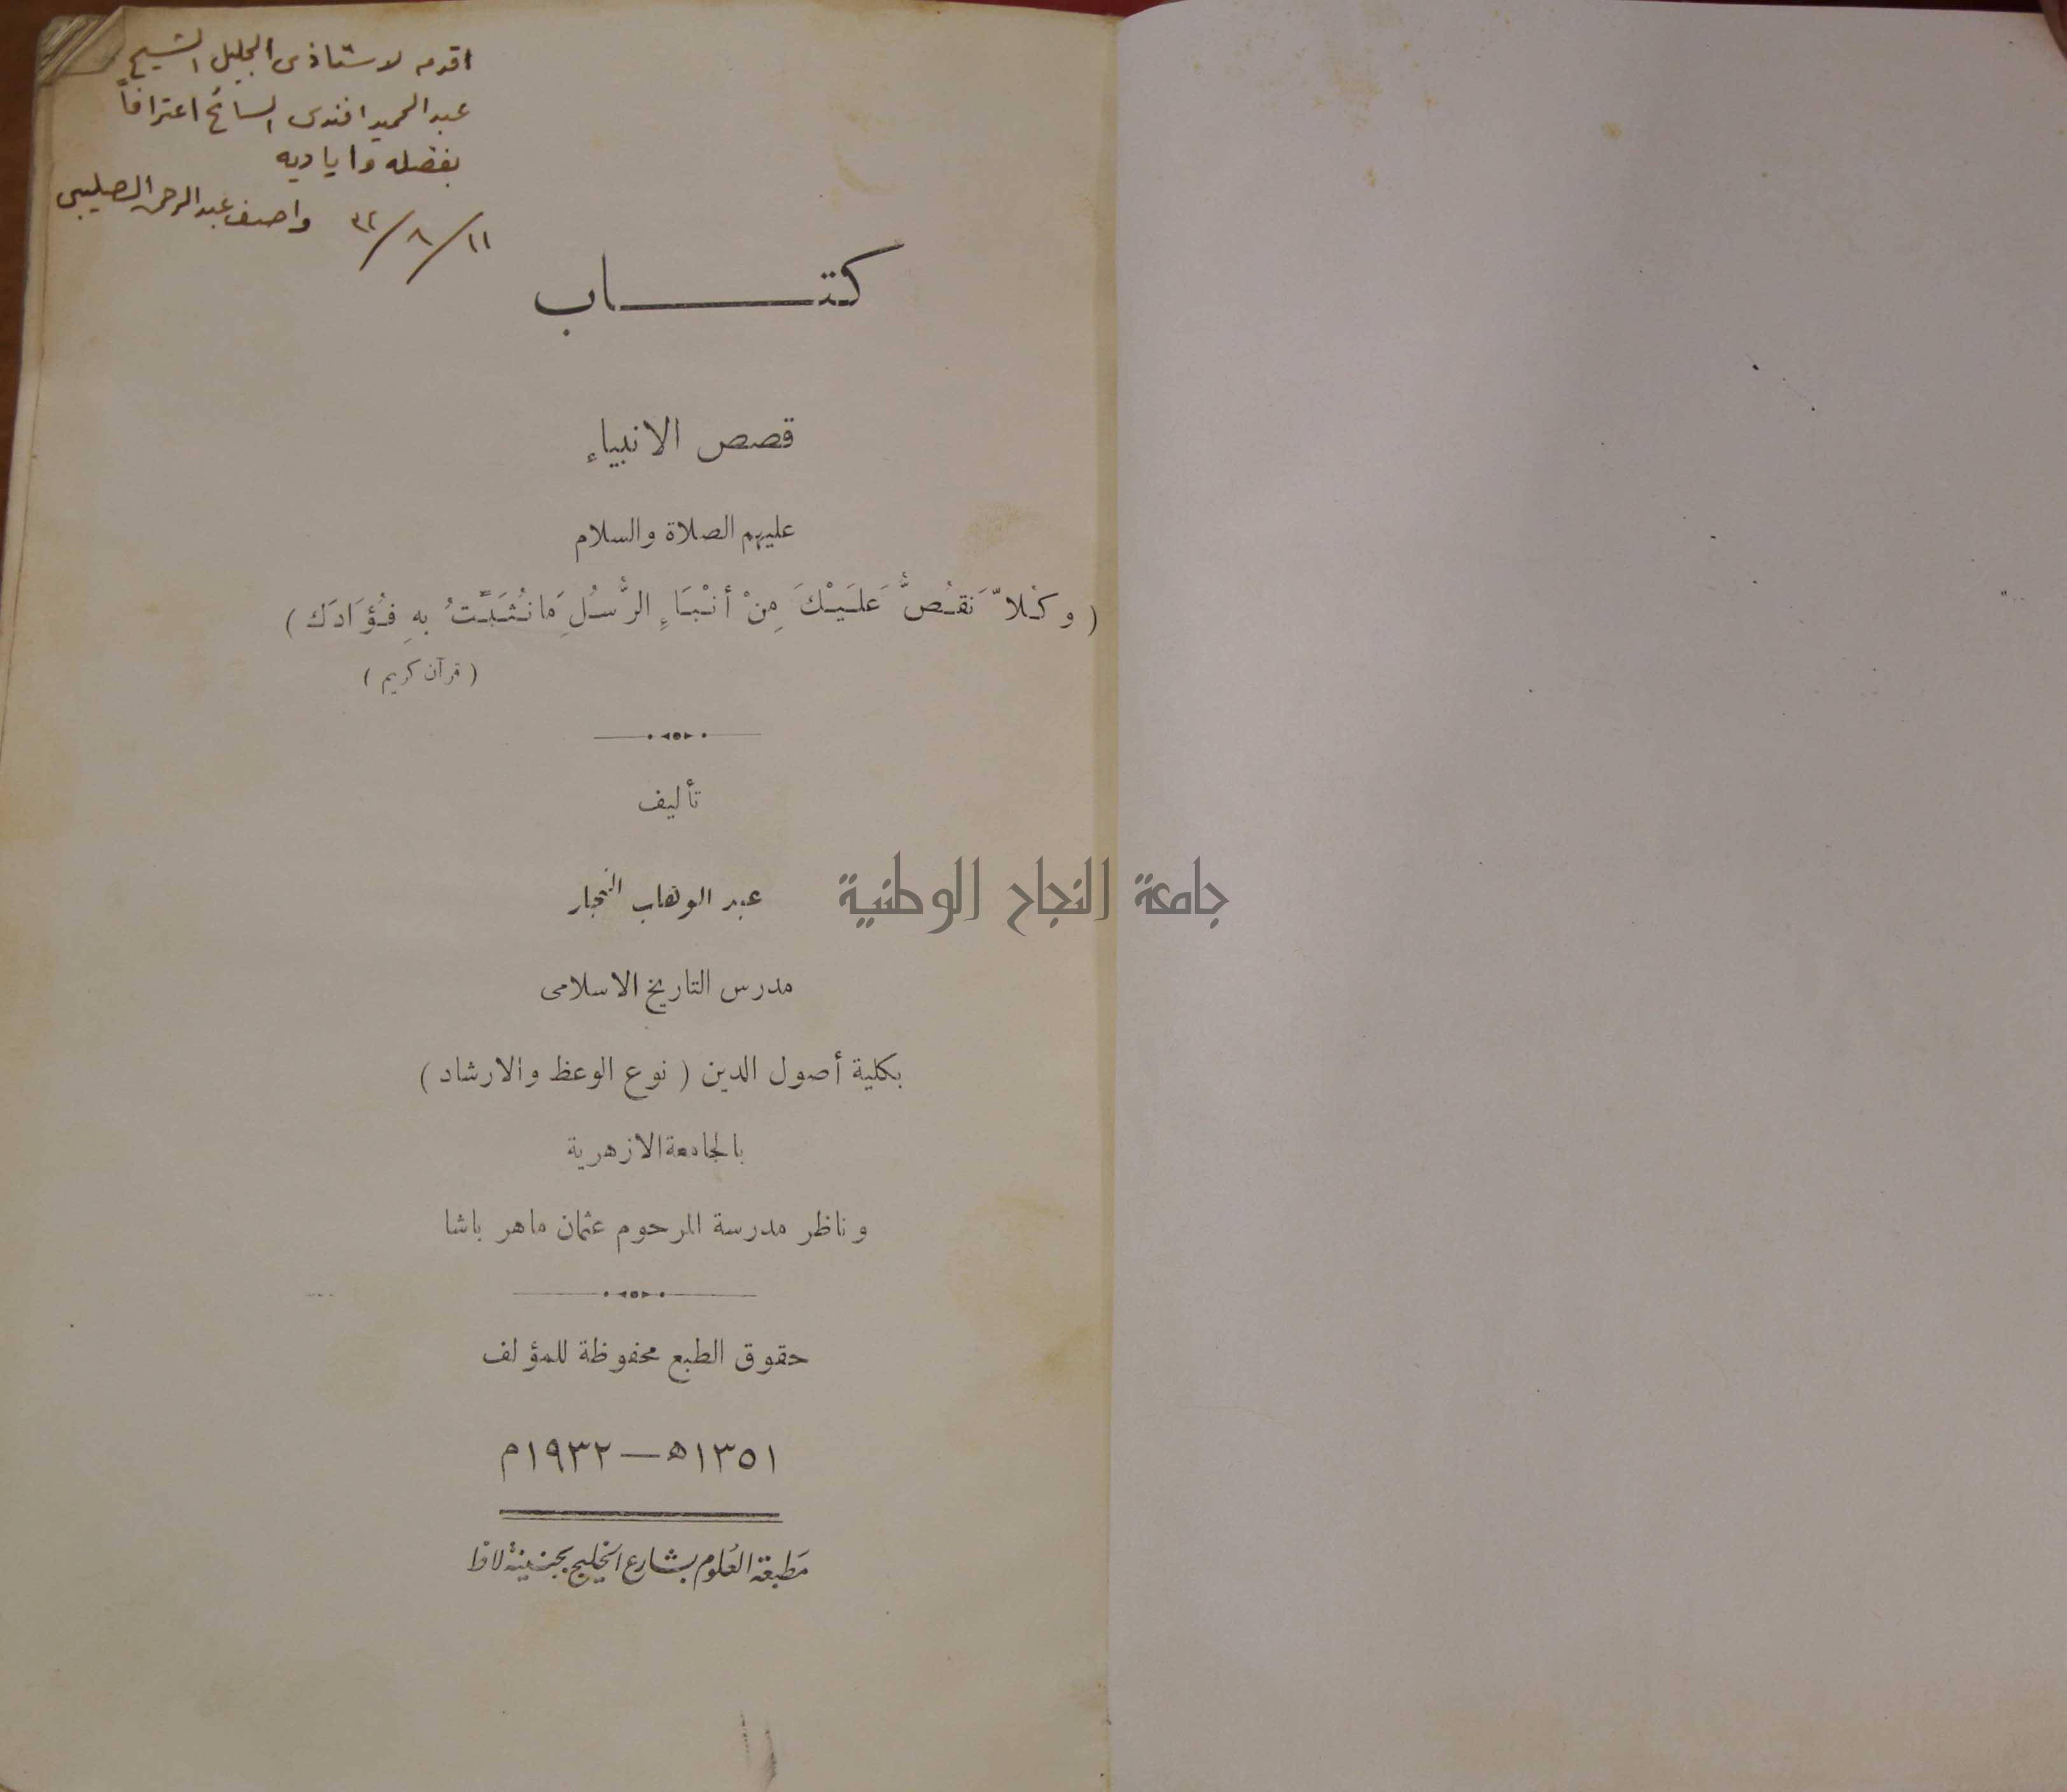 اقدمه لاستاذي الجليل الشيخ
عبد الحميد افندي السائح اعترافاً
بفضله واياديه
واصف عبد الرحمن الصليبي
١١/٨/٣٢
كتـــــاب
قصص الانبياء
عليهم الصلاة والسلام
( وكُلاًّ نَقُصُّ عَلَيْكَ مِنْ أنْبَاءِ الرُّسُلِ مَا نُثَبِّتُ بهِ فُؤَادَكَ )
( قرآن كريم )
تأليف
عبد الوهاب النجار
جامعة النجاح الوطنية
مدرس التاريخ الاسلامى
بكلية أصول الدين ( نوع الوعظ والارشاد )
بالجامعة الازهرية
وناظر مدرسة المرحوم عثمان ماهر باشا
حقوق الطبع محفوظة للمؤلف
١٣٥١ه — ١٩٣٢م
مطبعة العلوم بشارع الخليج بجنينة لاظ